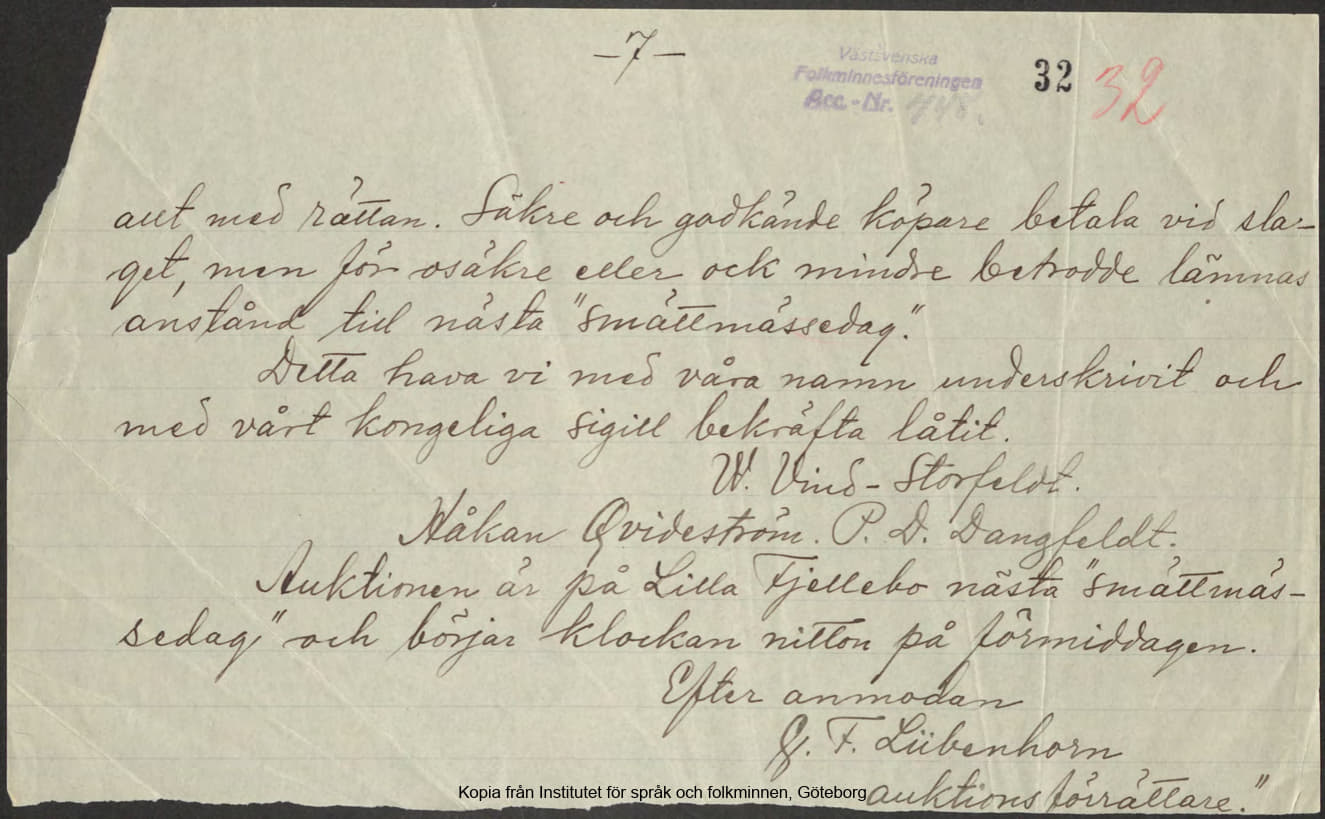 – 7 –
Västsvenska
Folkminnesföreningen
Acc.-Nr. 448.
32 32
allt med rättan. Säkre och godkände köpare betala vid sla-
get, men för osäkre eller ock mindre betrodde lämnas
anstånd till nästa "smättmässedag".
Detta hava vi med våra namn underskrivit och
med vårt kongeliga sigill bekräfta låtit.
W. Vind-Storfeldt.
Håkan Qvideström. P. D. Dangfeldt.
Auktionen är på Lilla Fjellebo nästa "smättmäs-
sedag" och börjar klockan nitton på förmiddagen.
Efter anmodan
G. F. Lübenhorn
auktionsförrättare."
Kopia från Institutet för språk och folkminnen, Göteborg